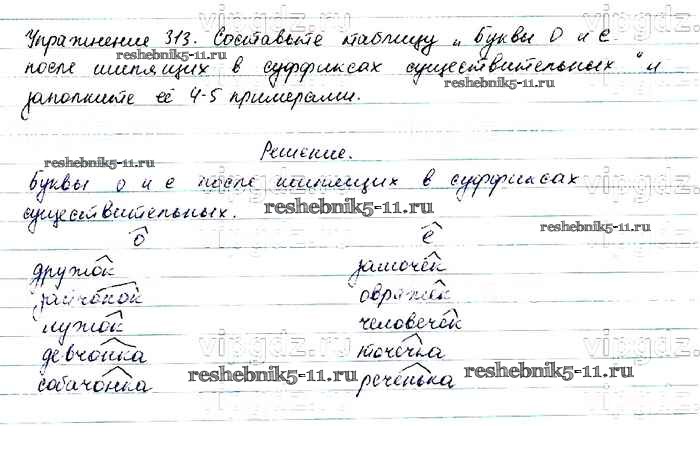 Упражнение 313. Составьте таблицу „Буквы О и е
после шипящих в суффиксах существительных" и
заполните её 4-5 примерами.
Решение.
Буквы о и е после шипящих в суффиксах
существительных.
о е
дружок замочек
зайчонок овражек
лужок человечек
девчонка точечка
собачонка реченька
vipgdz.ru
reshebnik5-11.ru